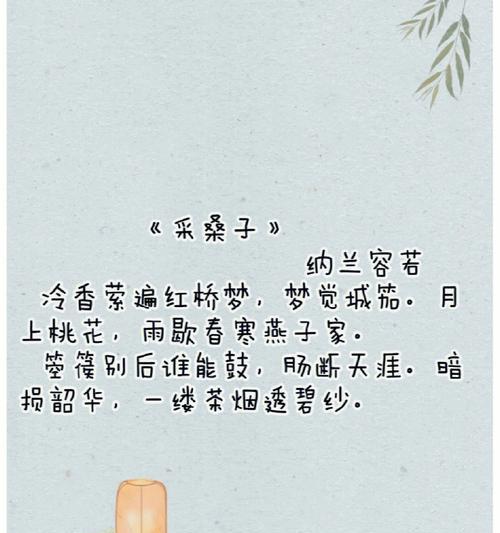 《采桑子》
纳兰容若
冷香萦遍红桥梦，梦觉城笳。月
上桃花，雨歇春寒燕子家。
箜篌别后谁能鼓，肠断天涯。暗
损韶华，一缕茶烟透碧纱。